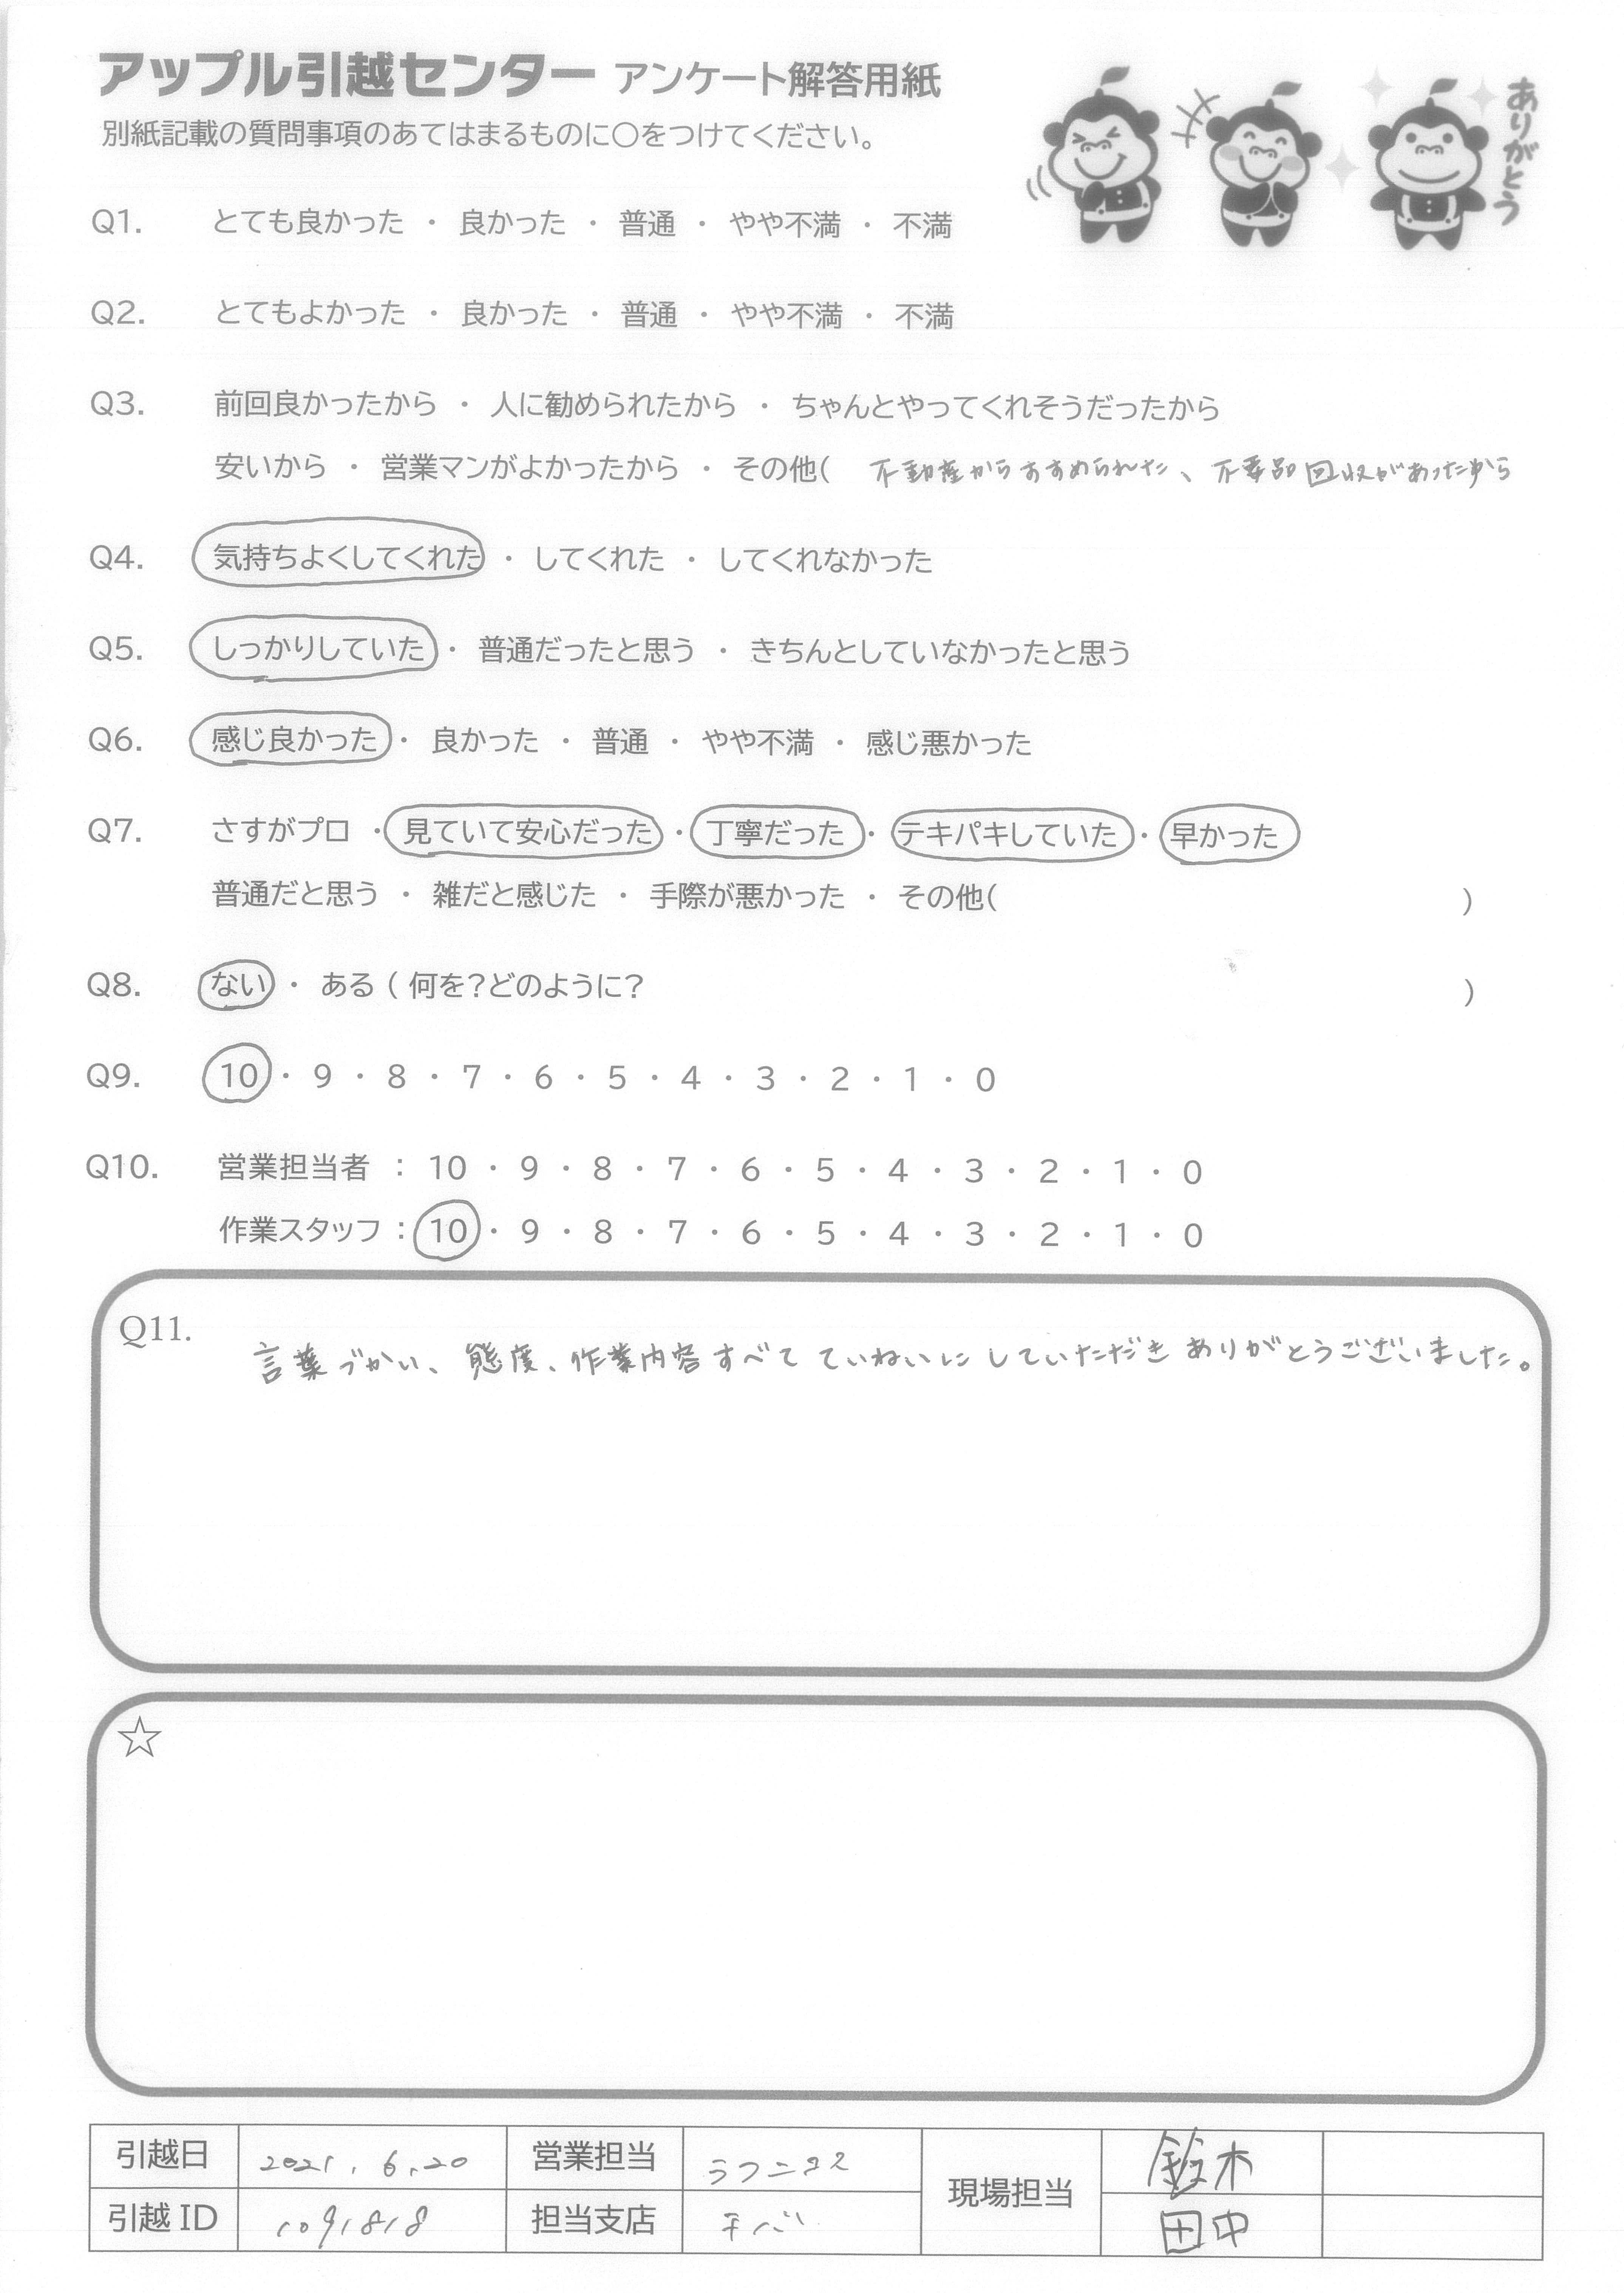 アップル引越センター アンケート解答用紙
別紙記載の質問事項のあてはまるものに○をつけてください。
ありがとう
Q1. とても良かった ・ 良かった ・ 普通 ・ やや不満 ・ 不満
Q2. とてもよかった ・ 良かった ・ 普通 ・ やや不満 ・ 不満
Q3. 前回良かったから ・ 人に勧められたから ・ ちゃんとやってくれそうだったから
安いから ・ 営業マンがよかったから ・ その他( 不動産からすすめられた、不要品回収があったから
Q4. 気持ちよくしてくれた ・ してくれた ・ してくれなかった
Q5. しっかりしていた ・ 普通だったと思う ・ きちんとしていなかったと思う
Q6. 感じ良かった ・ 良かった ・ 普通 ・ やや不満 ・ 感じ悪かった
Q7. さすがプロ ・ 見ていて安心だった ・ 丁寧だった ・ テキパキしていた ・ 早かった
普通だと思う ・ 雑だと感じた ・ 手際が悪かった ・ その他( )
Q8. ない ・ ある ( 何を?どのように? )
Q9. 10 ・ 9 ・ 8 ・ 7 ・ 6 ・ 5 ・ 4 ・ 3 ・ 2 ・ 1 ・ 0
Q10. 営業担当者 : 10 ・ 9 ・ 8 ・ 7 ・ 6 ・ 5 ・ 4 ・ 3 ・ 2 ・ 1 ・ 0
作業スタッフ : 10 ・ 9 ・ 8 ・ 7 ・ 6 ・ 5 ・ 4 ・ 3 ・ 2 ・ 1 ・ 0
Q11.
言葉づかい、態度、作業内容すべてていねいにしていただきありがとうございました。
☆
引越日 2021.6.20 営業担当 現場担当 鈴木
引越ID 1091818 担当支店 千バ 田中